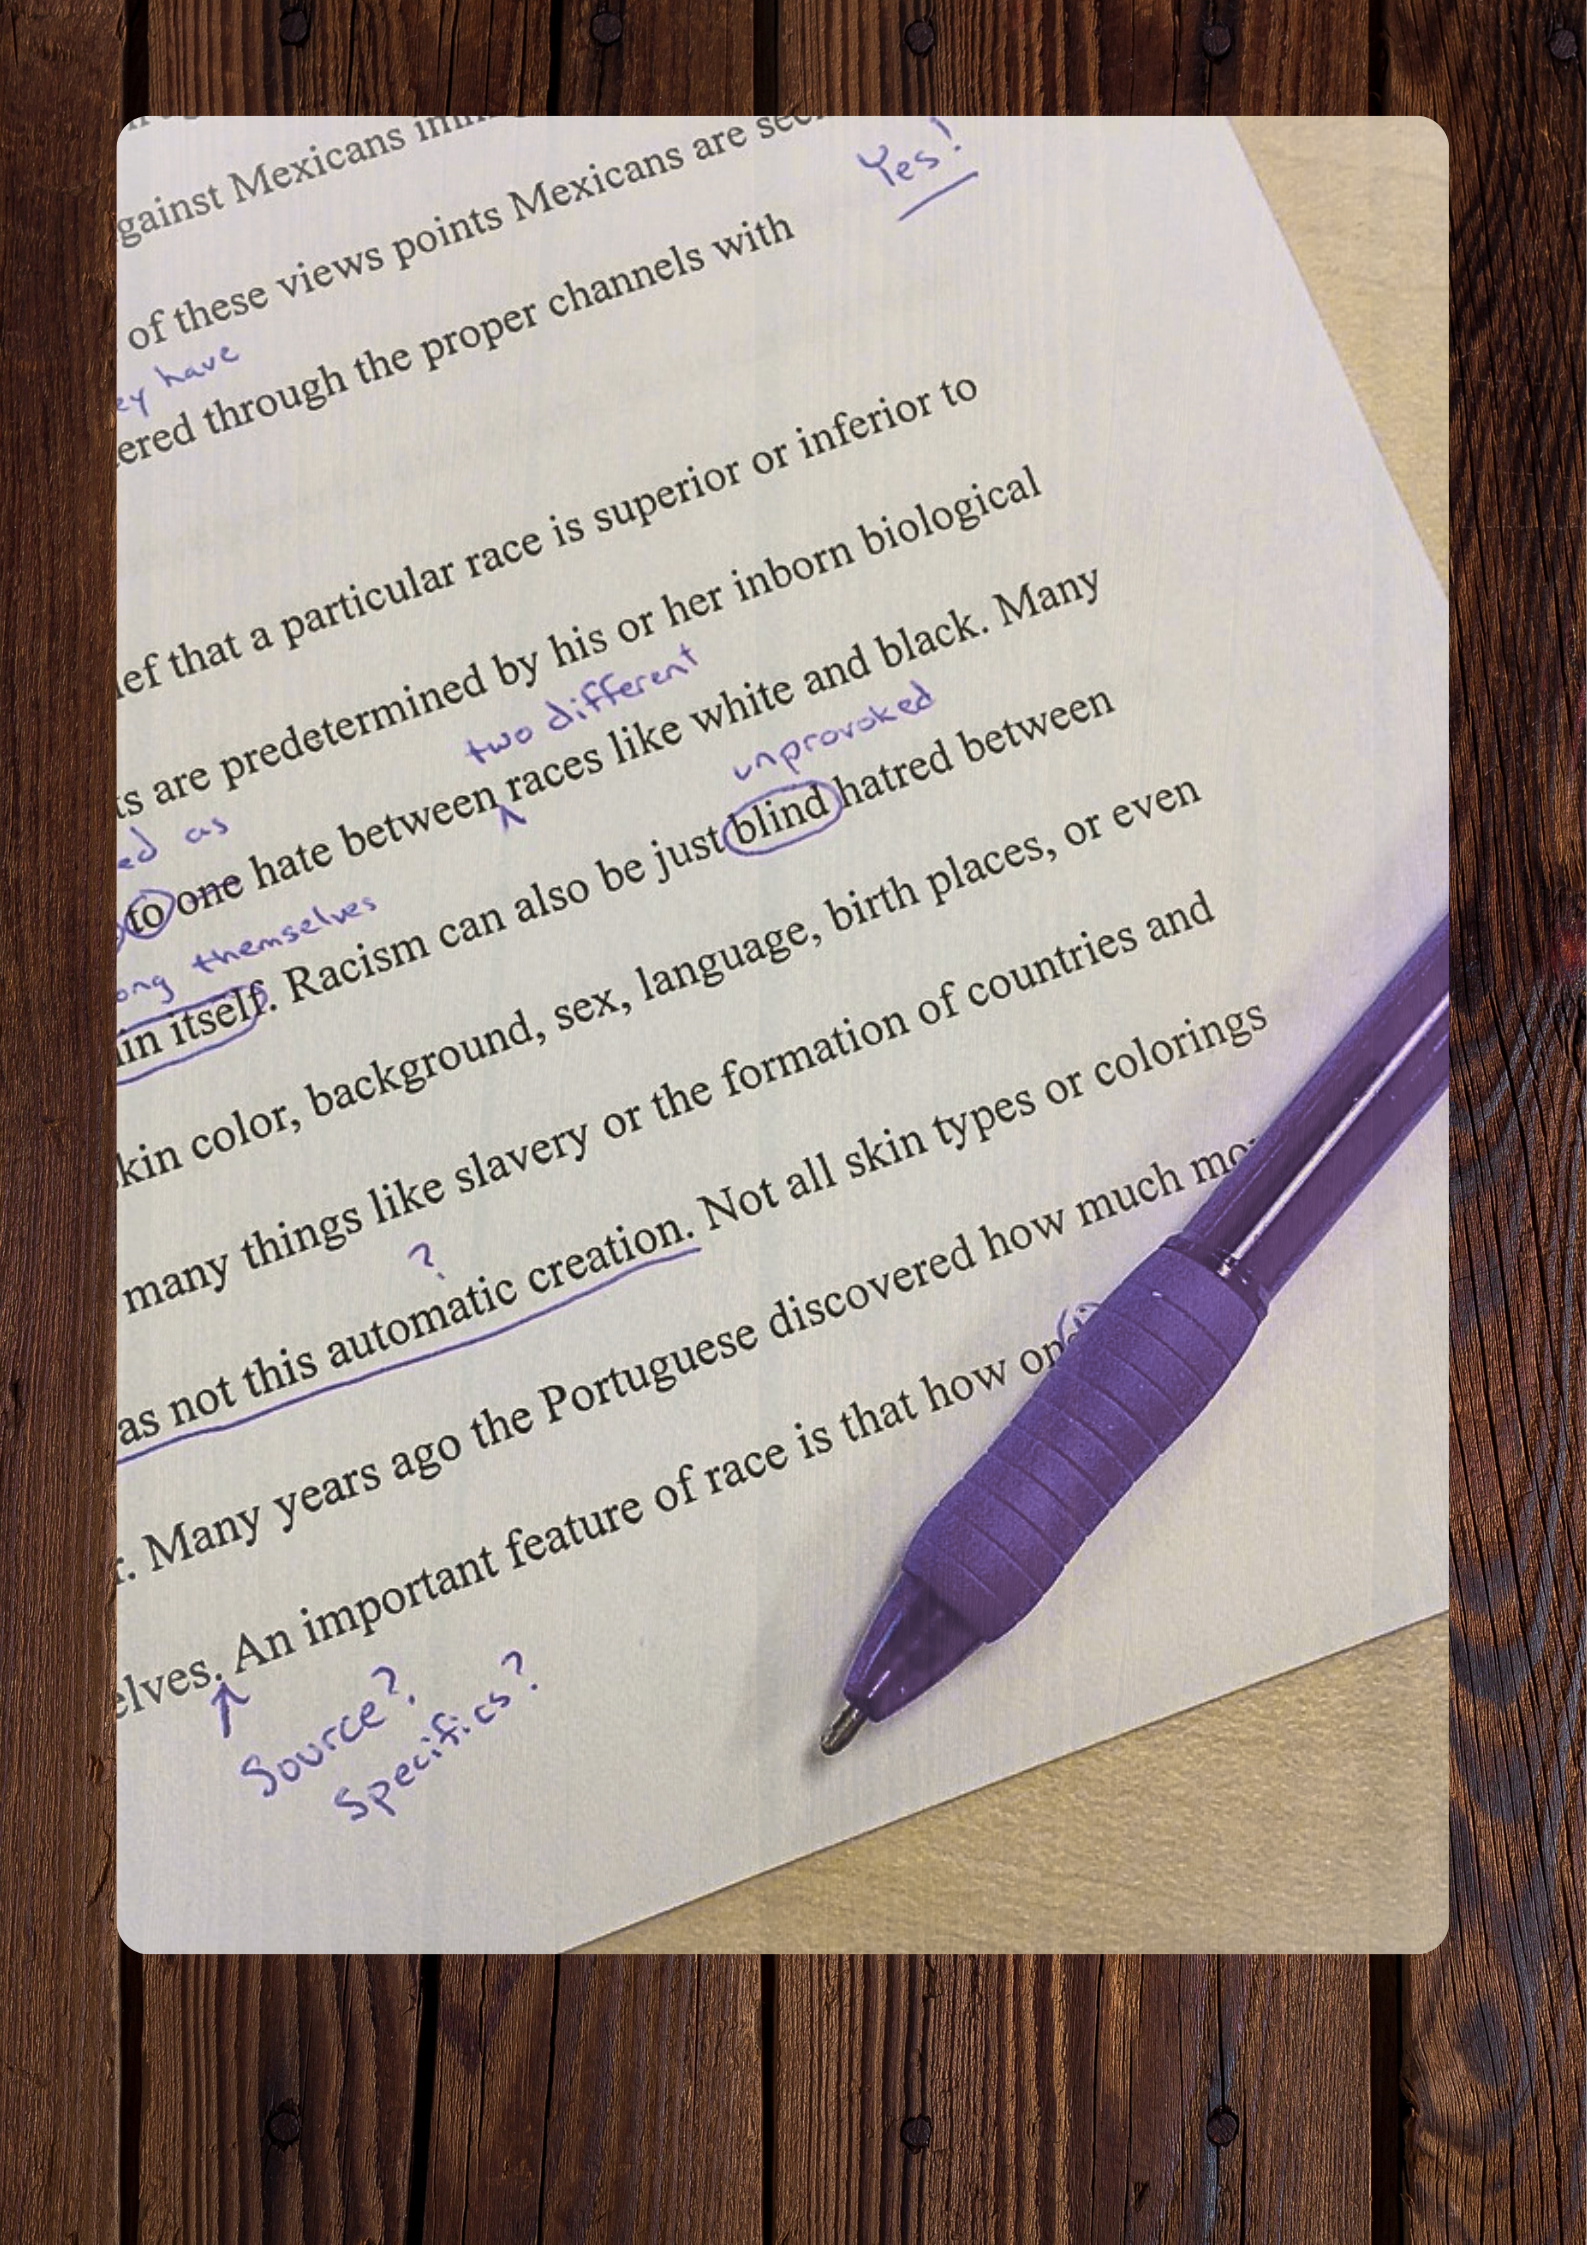 gainst Mexicans
Yes!
of these views points Mexicans are
ey have
ered through the proper channels with
ief that a particular race is superior or inferior to
ts are predetermined by his or her inborn biological
two different
races like white and black. Many
ed as
to one hate between
unprovoked
ong themselves
in itself. Racism can also be just blind hatred between
kin color, background, sex, language, birth places, or even
many things like slavery or the formation of countries and
?
as not this automatic creation. Not all skin types or colorings
r. Many years ago the Portuguese discovered how much
elves. An important feature of race is that how
Source?
Specifics?